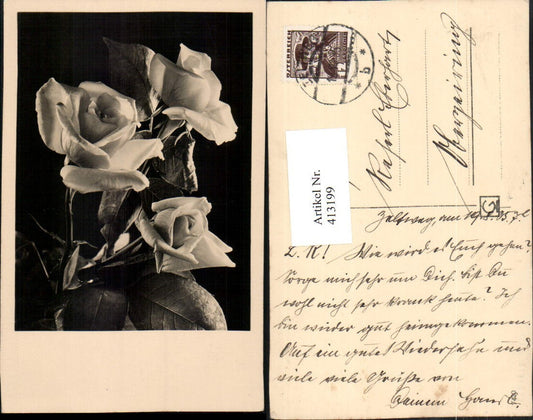 ÖSTERREICH
12
* b *
Artikel Nr.
413199
Karl
Zeltweg, am
L. K! Wie wird es Euch gehen?
Sorge mich sehr um Dich. Bist Du
wohl nicht sehr krank heute? Ich
bin wieder gut heimgekommen.
Auf ein gutes Wiedersehn und
viele viele Grüße von
Deinem Hans